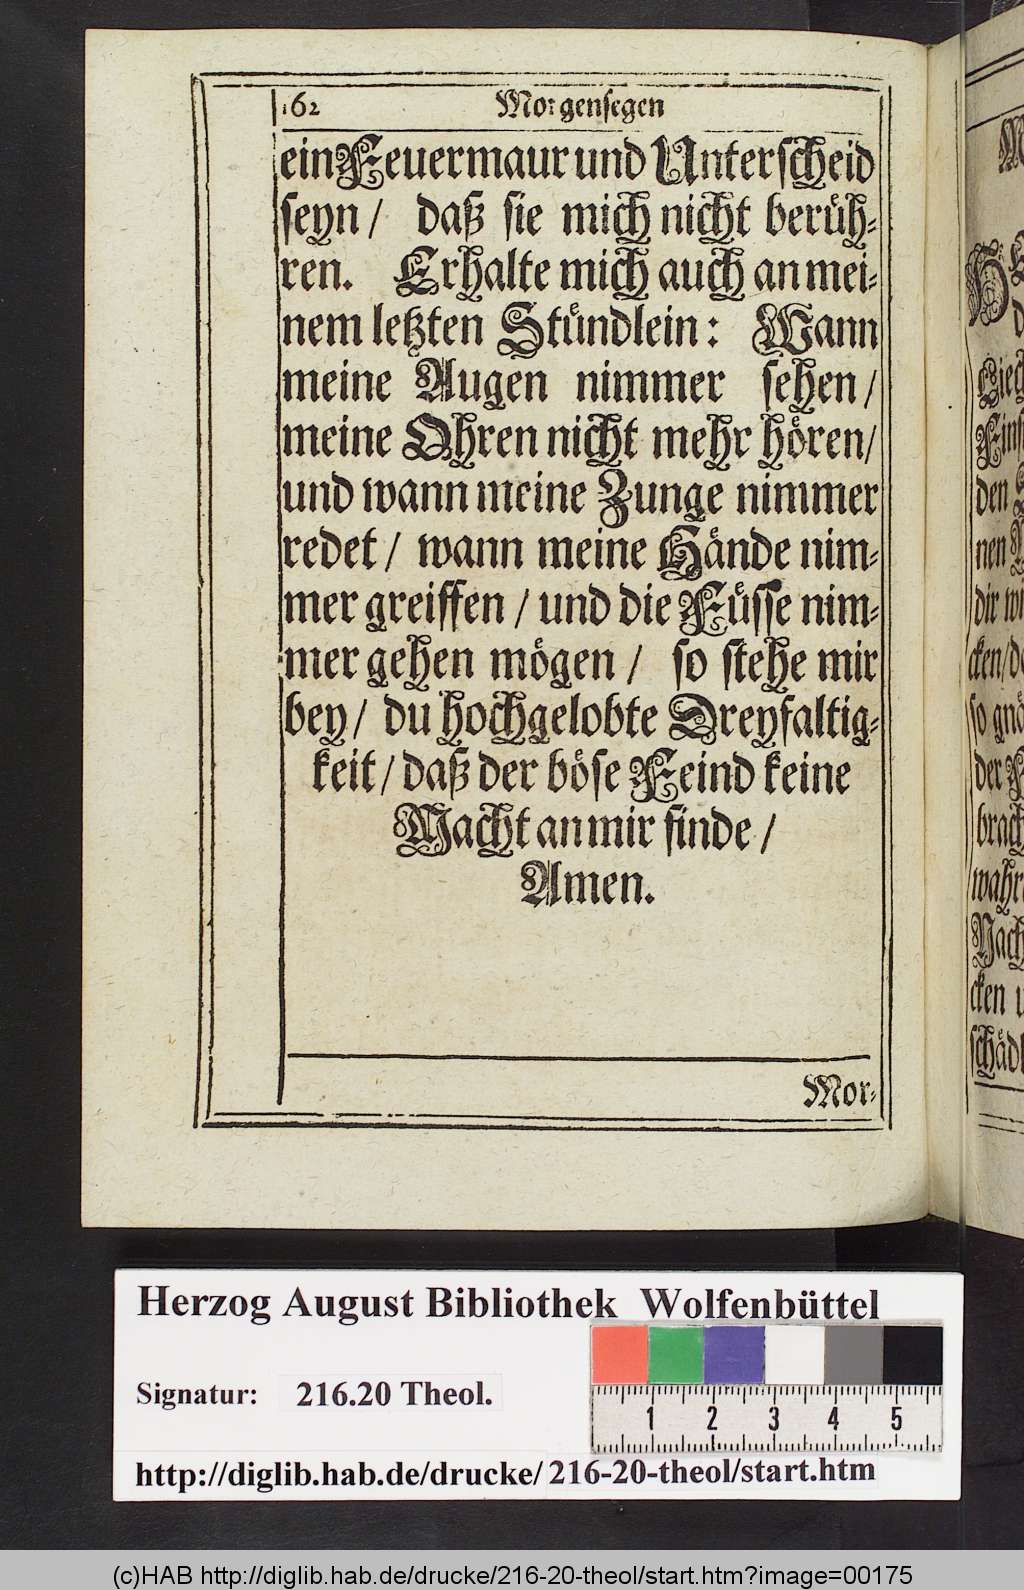 162 Morgensegen
ein Feuermaur und Unterscheid
seyn / daß sie mich nicht berüh-
ren. Erhalte mich auch an mei-
nem letzten Stündlein: Wann
meine Augen nimmer sehen /
meine Ohren nicht mehr hören /
und wann meine Zunge nimmer
redet / wann meine Hände nim-
mer greiffen / und die Füsse nim-
mer gehen mögen / so stehe mir
bey / du hochgelobte Dreyfaltig-
keit / daß der böse Feind keine
Macht an mir finde /
Amen.
Mor-
den
nen
dir
cken /
so
der
brach
cken
Herzog August Bibliothek Wolfenbüttel
Signatur: 216.20 Theol.
1 2 3 4 5
http://diglib.hab.de/drucke/216-20-theol/start.htm
(c)HAB http://diglib.hab.de/drucke/216-20-theol/start.htm?image=00175